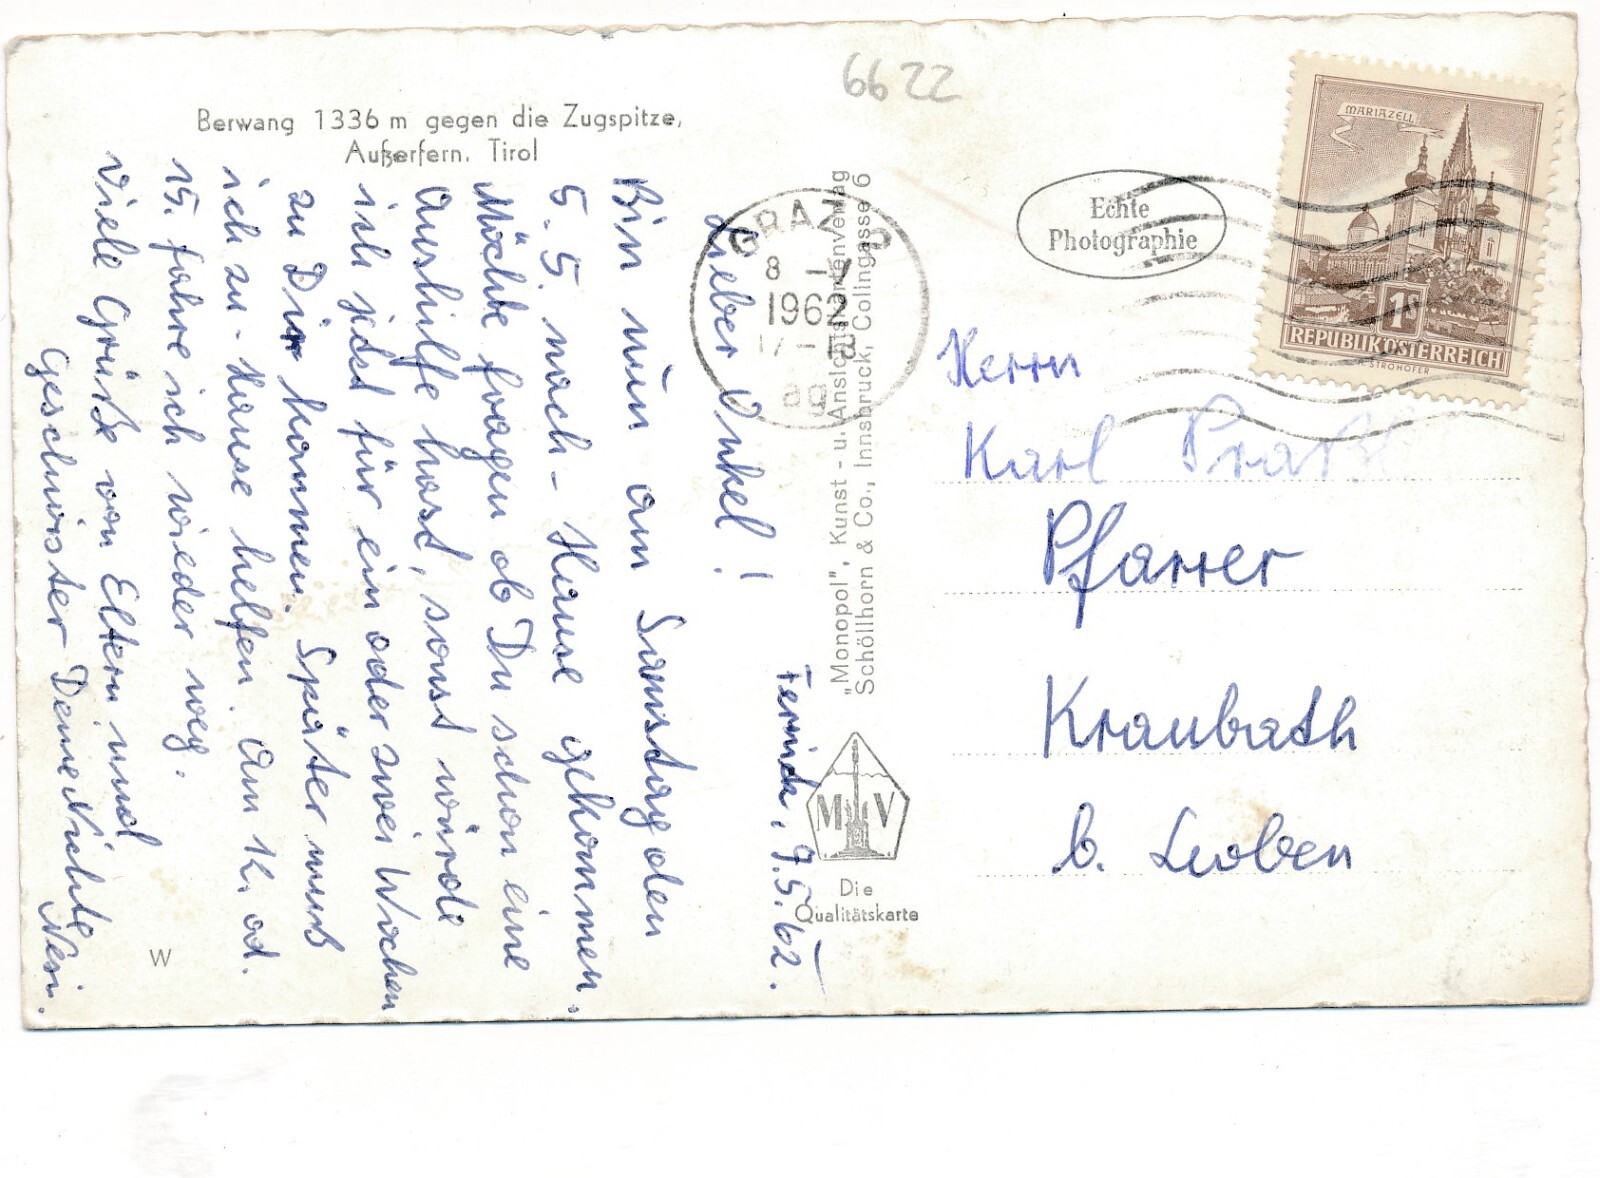 6622
Berwang 1336 m gegen die Zugspitze,
Außerfern. Tirol
9.5.62.
Lieber Onkel!
Bin nun am Samstag den
5.5. nach-Hause gekommen.
Möchte fragen ob Du schon eine
Aushilfe hast, sonst würde
ich jetzt für ein oder zwei Wochen
zu Dir kommen. Später muß
ich zu-Hause helfen. Am 14. od.
15. fahre ich wieder weg.
Viele Grüße von Eltern und
Geschwister Deine Nichte
W
GRAZ
8 - V
1962
17-18
"Monopol", Kunst- u. Ansichtskartenverlag
Schöllhorn & Co., Innsbruck, Colingasse 6
M V
Die
Qualitätskarte
Echte
Photographie
MARIAZELL
1S
REPUBLIK ÖSTERREICH
STROHOFER
Herrn
Karl
Pfarrer
Kraubath
b. Leoben